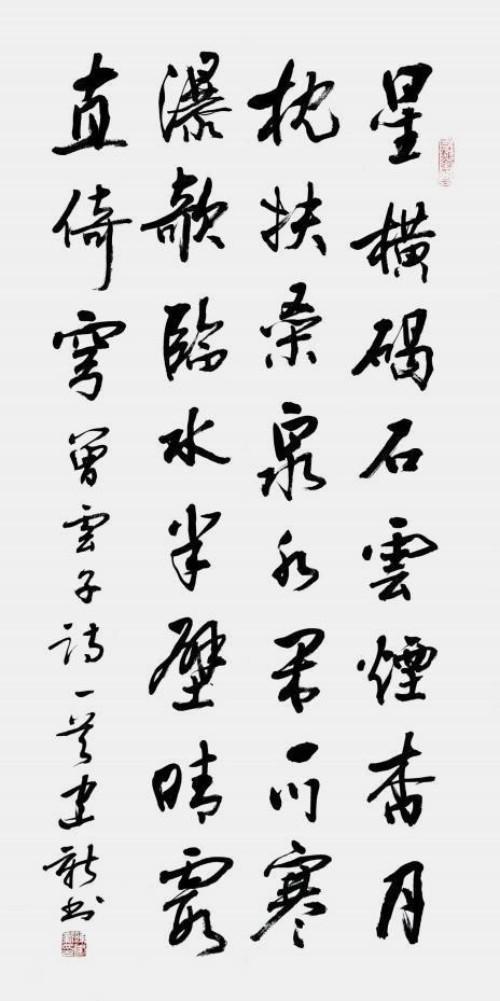 星橫碣石雲煙杳月
枕扶桑泉一川寒
瀑欹臨水半壁晴霞
直倚穹 曾雲子詩一建新书